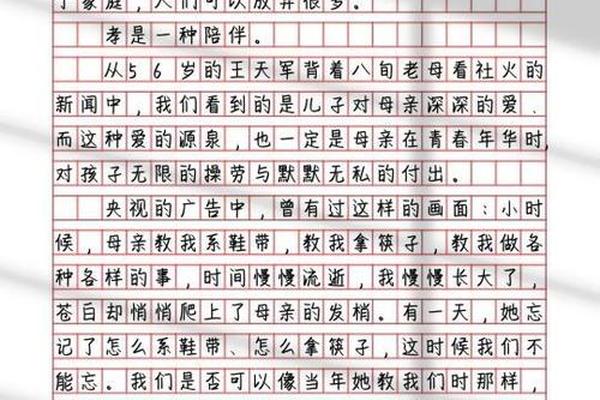 了家庭，人们可以放弃很多。
孝是一种陪伴。
从56岁的王天军背着八旬老母看社火的
新闻中，我们看到的是儿子对母亲深深的爱、
而这种爱的源泉，也一定是母亲在青春年华时，
对孩子无限的操劳与默默无私的付出。
央视的广告中，曾有过这样的画面：小时
候，母亲教我系鞋带，教我拿筷子，教我做各
种各样的事，时间慢慢流逝，我慢慢长大了，
苍白却悄悄爬上了母亲的发梢。有一天，她忘
记了怎么系鞋带、怎么拿筷子，这时候我们不
能忘。我们是否可以像当年她教我们时那样，